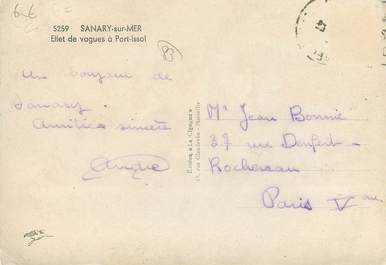 6-6
5259 SANARY-sur-MER
Effet de vagues à Port-Issol
83
Un bonjour de
Sanary.
Amitiés sincères
André
Editions « La Cigogne »
Mr Jean Bonnié
27 rue Denfert-
Rochereau
Paris V